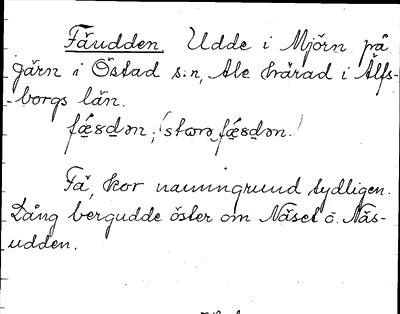 Fäudden. Udde i Mjörn på
gärn i Östad s:n, Ale härad i Älfs-
-borgs län.
Fä, kor namngrund tydligen.
Lång bergudde öster om Näset o. Näs-
udden.